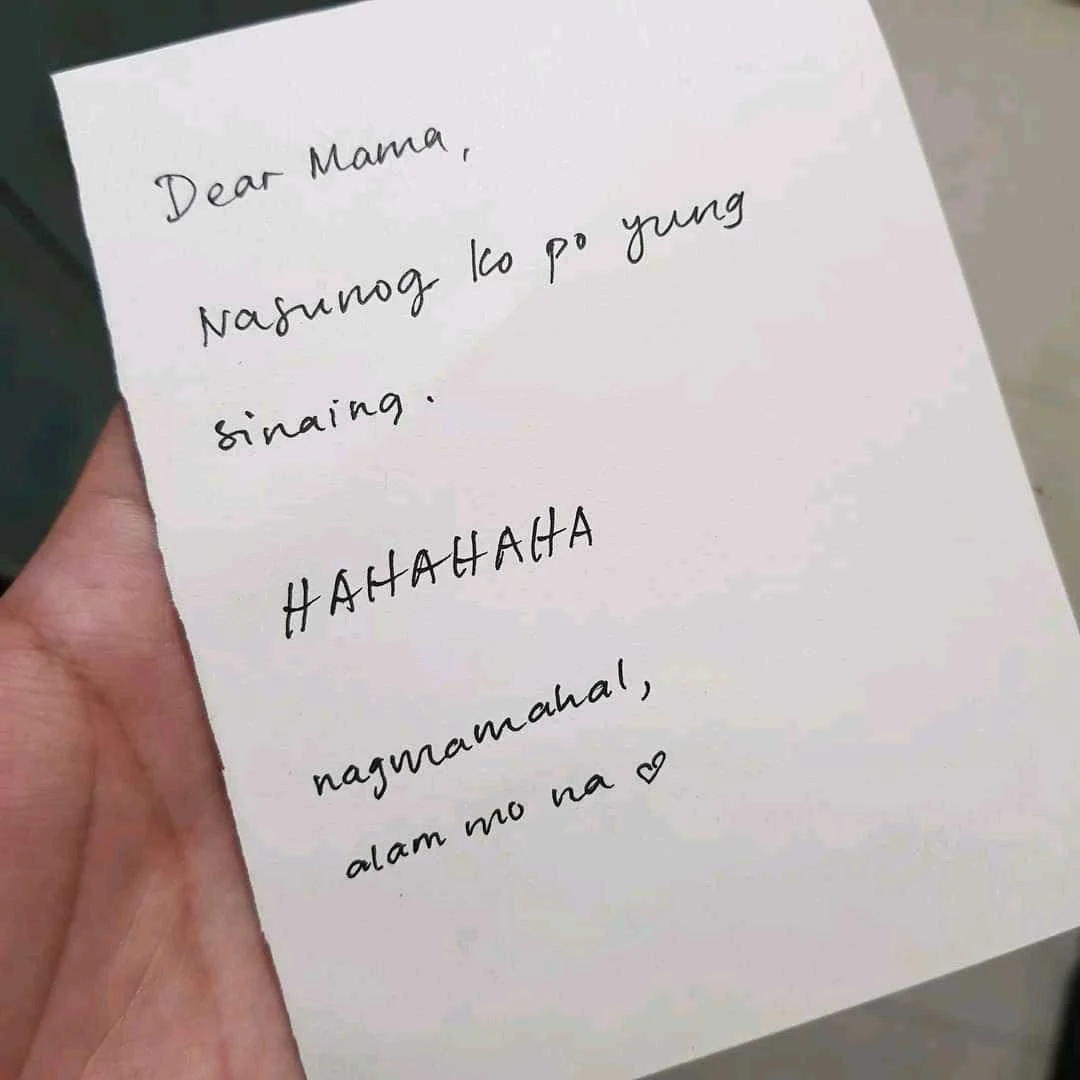 Dear Mama,
Nasunog ko po yung
sinaing.
HAHAHAHA
nagmamahal,
alam mo na ♡